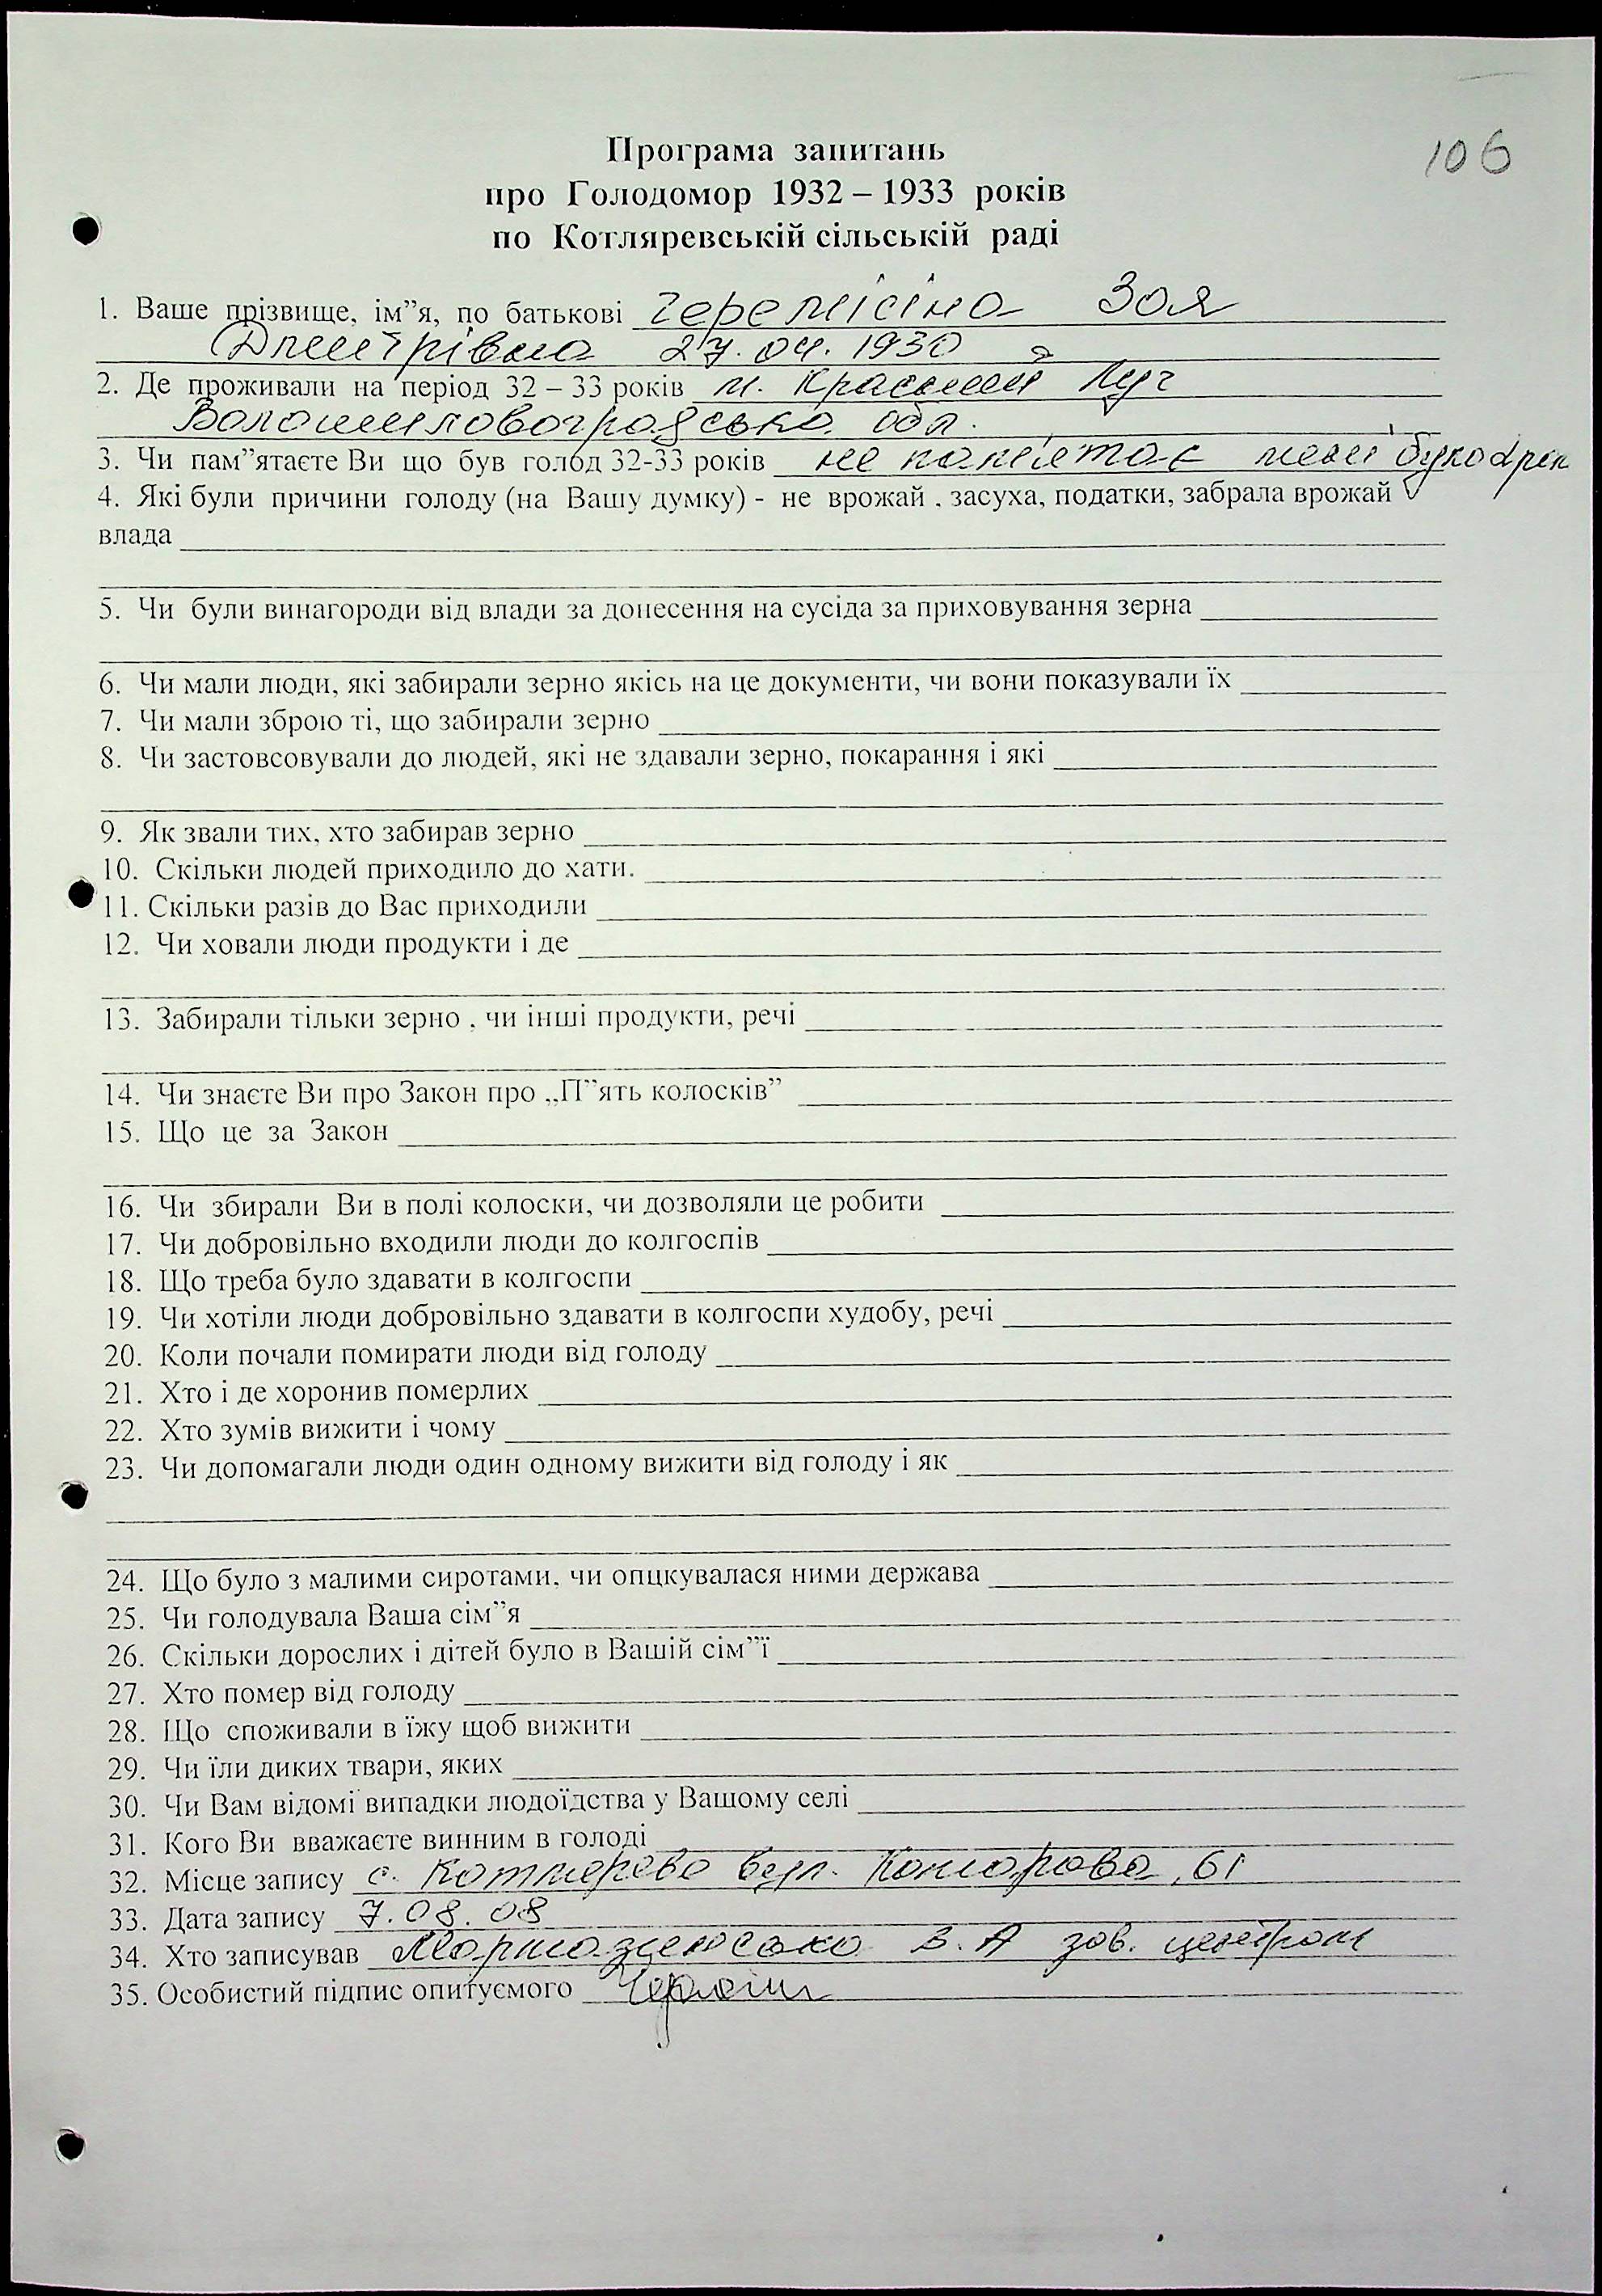 106
Програма запитань
про Голодомор 1932 – 1933 років
по Котляревській сільській раді
1. Ваше прізвище, ім”я, по батькові Черемісіна Зоя
Дмитрівна 27.04.1930
2. Де проживали на період 32 – 33 років м. Красний Луч
Ворошиловоградська обл.
3. Чи пам”ятаєте Ви що був голод 32-33 років не пам'ятає мені було 2 роки
4. Які були причини голоду (на Вашу думку) - не врожай , засуха, податки, забрала врожай
влада
5. Чи були винагороди від влади за донесення на сусіда за приховування зерна
6. Чи мали люди, які забирали зерно якісь на це документи, чи вони показували їх
7. Чи мали зброю ті, що забирали зерно
8. Чи застовсовували до людей, які не здавали зерно, покарання і які
9. Як звали тих, хто забирав зерно
10. Скільки людей приходило до хати.
11. Скільки разів до Вас приходили
12. Чи ховали люди продукти і де
13. Забирали тільки зерно , чи інші продукти, речі
14. Чи знаєте Ви про Закон про „П”ять колосків”
15. Що це за Закон
16. Чи збирали Ви в полі колоски, чи дозволяли це робити
17. Чи добровільно входили люди до колгоспів
18. Що треба було здавати в колгоспи
19. Чи хотіли люди добровільно здавати в колгоспи худобу, речі
20. Коли почали помирати люди від голоду
21. Хто і де хоронив померлих
22. Хто зумів вижити і чому
23. Чи допомагали люди один одному вижити від голоду і як
24. Що було з малими сиротами, чи опцкувалася ними держава
25. Чи голодувала Ваша сім”я
26. Скільки дорослих і дітей було в Вашій сім”ї
27. Хто помер від голоду
28. Що споживали в їжу щоб вижити
29. Чи їли диких твари, яких
30. Чи Вам відомі випадки людоїдства у Вашому селі
31. Кого Ви вважаєте винним в голоді
32. Місце запису с. Котлярево вул. Комарова, 61
33. Дата запису 7.08.08
34. Хто записував В. А зав. центром
35. Особистий підпис опитуємого